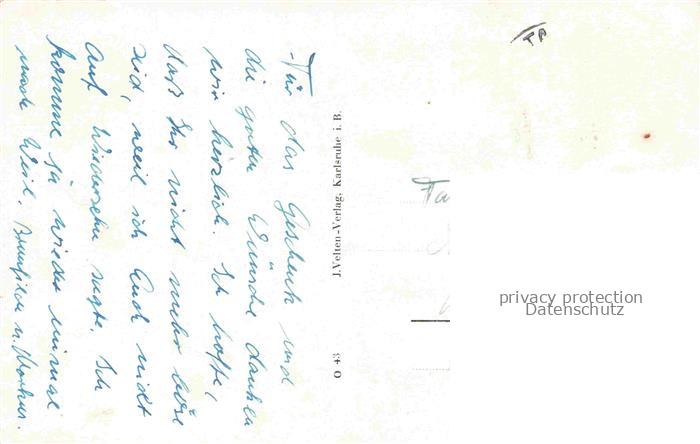 Für das Geschenk und
die guten Wünsche danken
wir herzlich. Ich hoffe,
daß Ihr nicht mehr böse
seid, weil ich Euch nicht
Auf Wiedersehn sagte. Ich
komme ja wieder einmal
nach Weil. Brunhilde u.
J. Velten-Verlag, Karlsruhe i. B.
O 43
Fa
privacy protection
Datenschutz